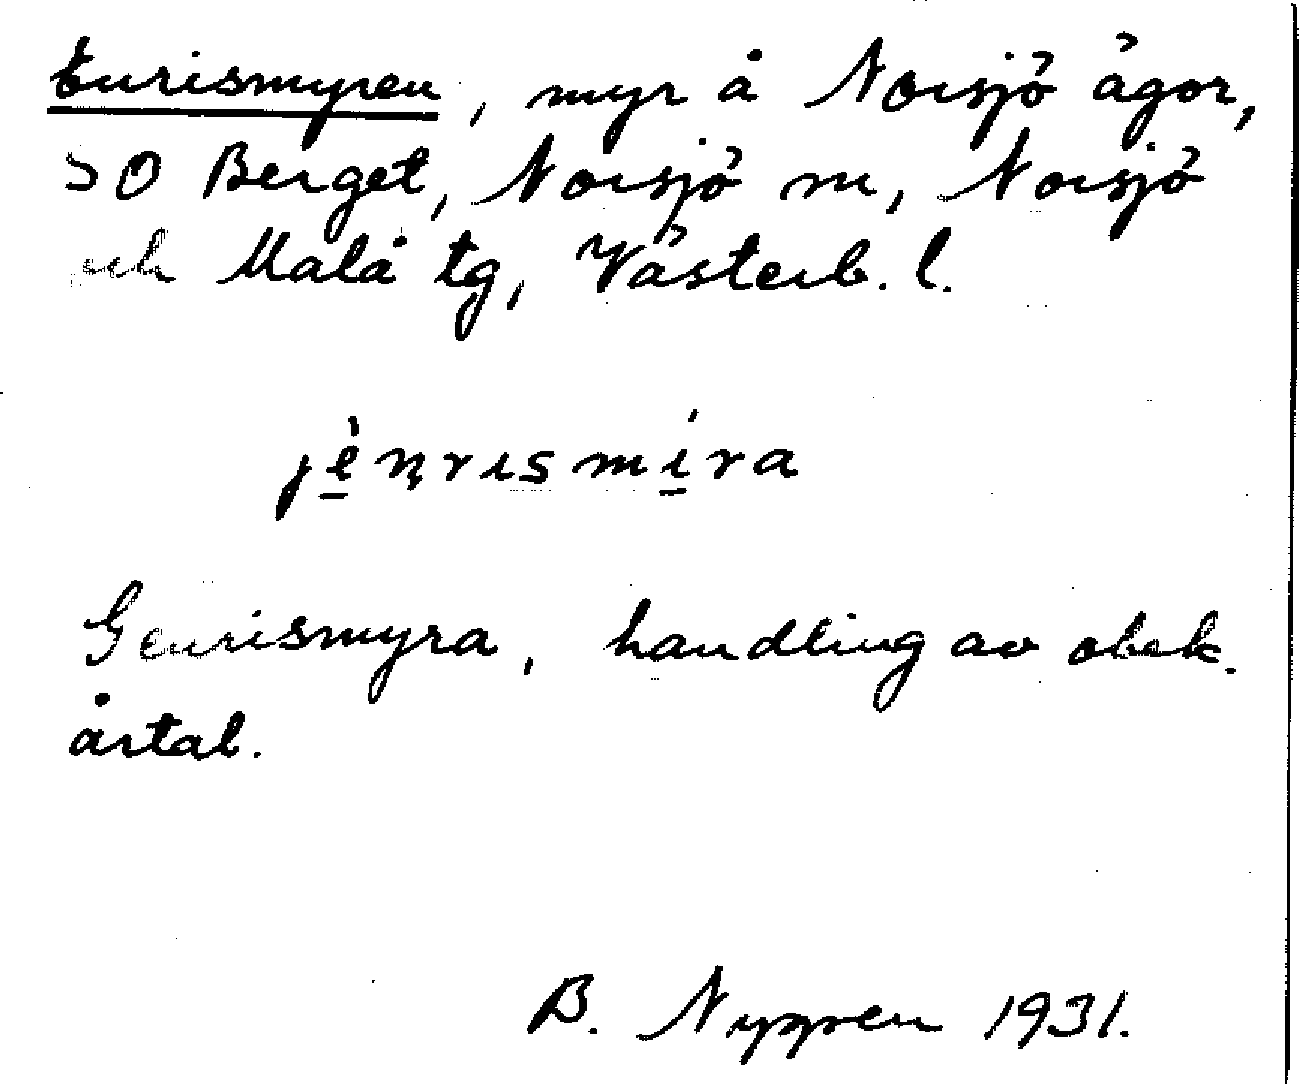 Enrismyren, myr å Norsjö ägor,
SO Berget, Norsjö sn, Norsjö
och Malå tg, Västerb. l.
jènrismíra
Genrismyra, handling av obek.
årtal.
B. Nygren 1931.